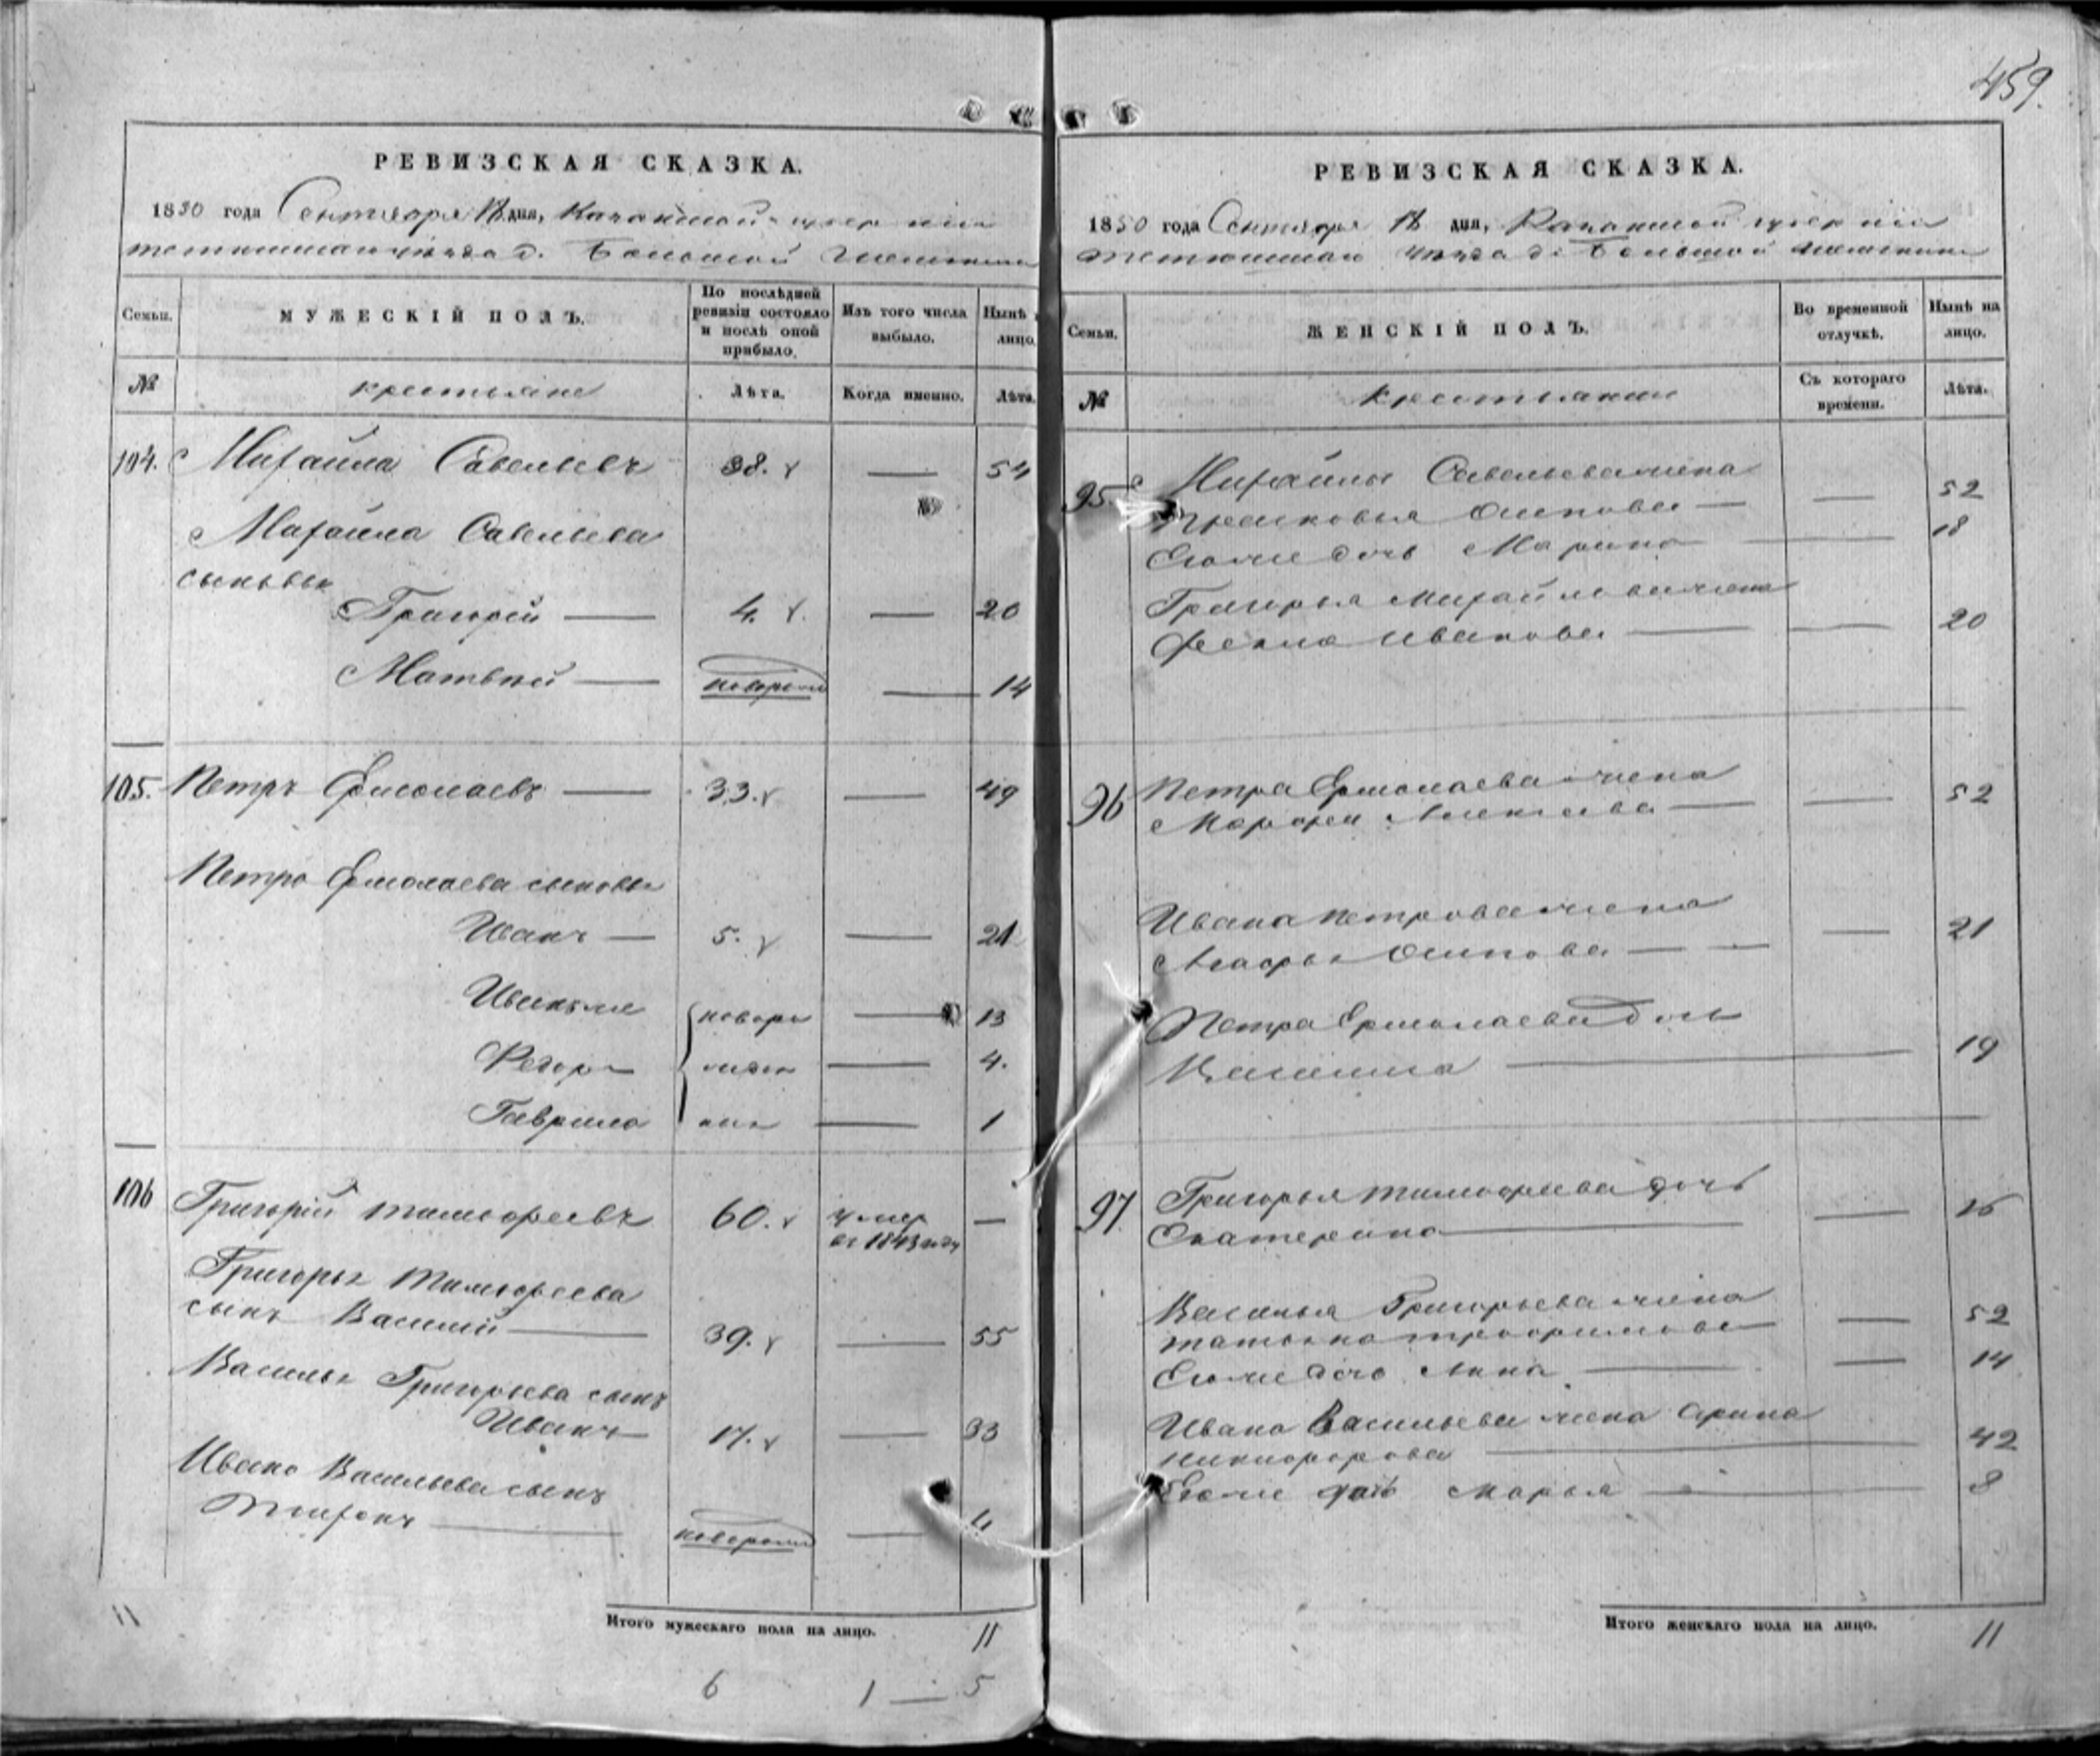 459.
РЕВИЗСКАЯ СКАЗКА.
1850 года Сентября 18 дня, Казанской губернiи
тетюшскаго уѣзда д. Большой
Семьи.
МУЖЕСКIЙ ПОЛЪ.
По послѣдней ревизiи состояло и послѣ оной прибыло.
Изъ того числа выбыло.
Нынѣ лицо.
№
крестьяне
Лѣта.
Когда именно.
Лѣта.
104. Михайла Савельевъ 38. — 54
Михайла Савельева
сыновья
Григорiй — 4. — 20
Матвѣй — новорож — 14
105. Петръ Ермолаевъ — 33. — 49
Петра Ермолаева сыновья
Иванъ — 5. — 21
Иванъ же новоро — 13
Федоръ жден — 4.
Гаврила ные — 1
106 Григорiй тимофеевъ 60. умер —
въ 1843 году
Григорья Тимофеева
сынъ Василiй — 39. — 55
Василья Григорьева сынъ
Иванъ 17. — 33
Ивана Васильева сынъ
Тихонъ — новорож — 4
11
Итого мужескаго пола на лицо. 11
6 1 — 5
РЕВИЗСКАЯ СКАЗКА.
1850 года Сентября 18 дня, Казанской губернiи
тетюшскаго уѣзда д: Большой
Семьи.
ЖЕНСКIЙ ПОЛЪ.
Во временной отлучкѣ.
Нынѣ на лицо.
№
крестьянки
Съ котораго времени.
Лѣта.
95. Михайлы Савельева жена
Прасковья Осипова — — 52
Ево же дочь Марина — 18
Григорья Михайлова жена
Фекла Иванова — — 20
96 Петра Ермолаева жена
Марфа Алексеева — — 52
Ивана петрова жена
Агафья Осипова — — — 21
Петра Ермолаева дочь
— 19
97. Григорья тимофеева дочь
Екатерина — — 16
Василья Григорьева жена
татьяна трофимова — — 52
Ево же дочь Анна — — 14
Ивана Васильева жена Арина
никифорова — 42
Ево же дочь Марья — 8
Итого женскаго пола на лицо. 11